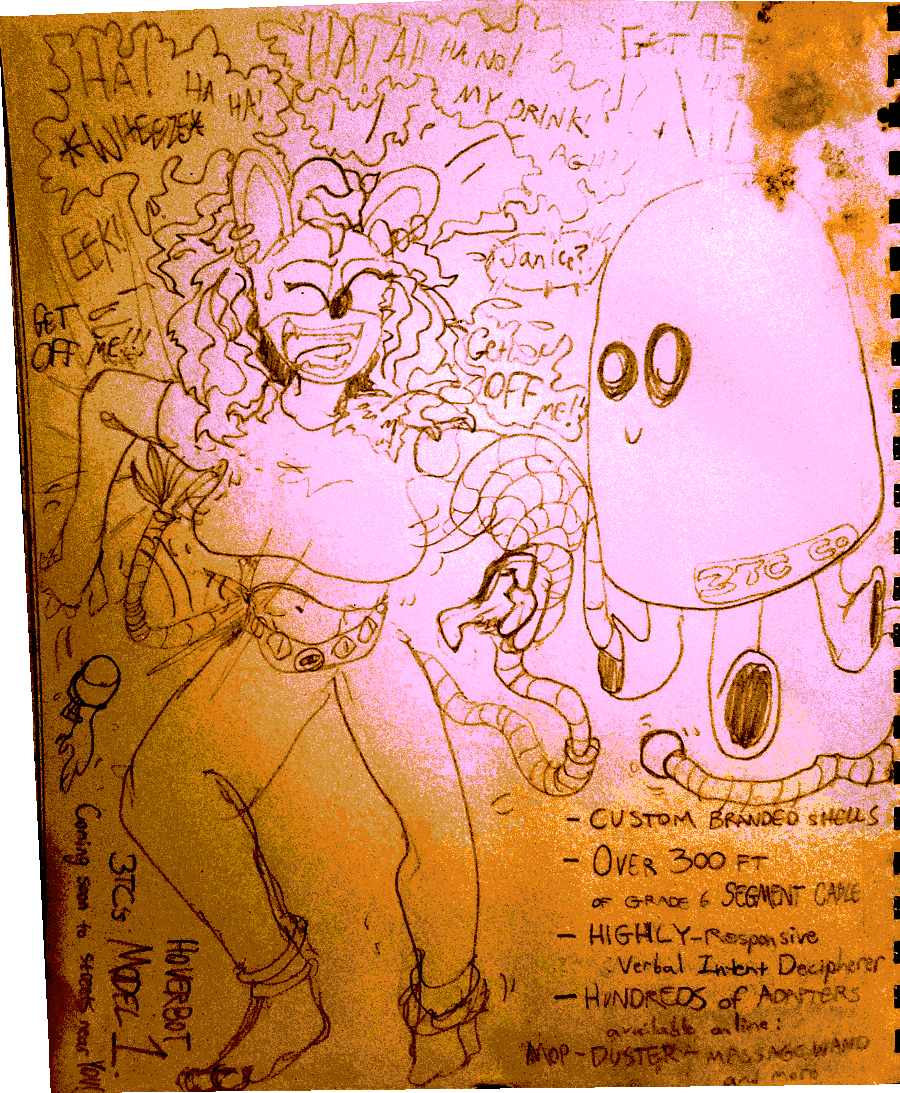 HA!
HA
HA!
*WHEEZE*
HA! AH HA NO!
MY DRINK!
AGH!
GET OFF
EEK!
GET
OFF ME!!!
Janice?
Get
OFF
ME!!
3TC Co
- CUSTOM BRANDED SHELLS
- OVER 300 FT
OF GRADE 6 SEGMENT CABLE
- HIGHLY-Responsive
Verbal Intent Decipherer
- HUNDREDS of ADAPTERS
available online:
MOP-DUSTER-MASSAGE WAND
and more
HOVERBOT
3TCs MODEL 1
Coming soon to streets near YOU